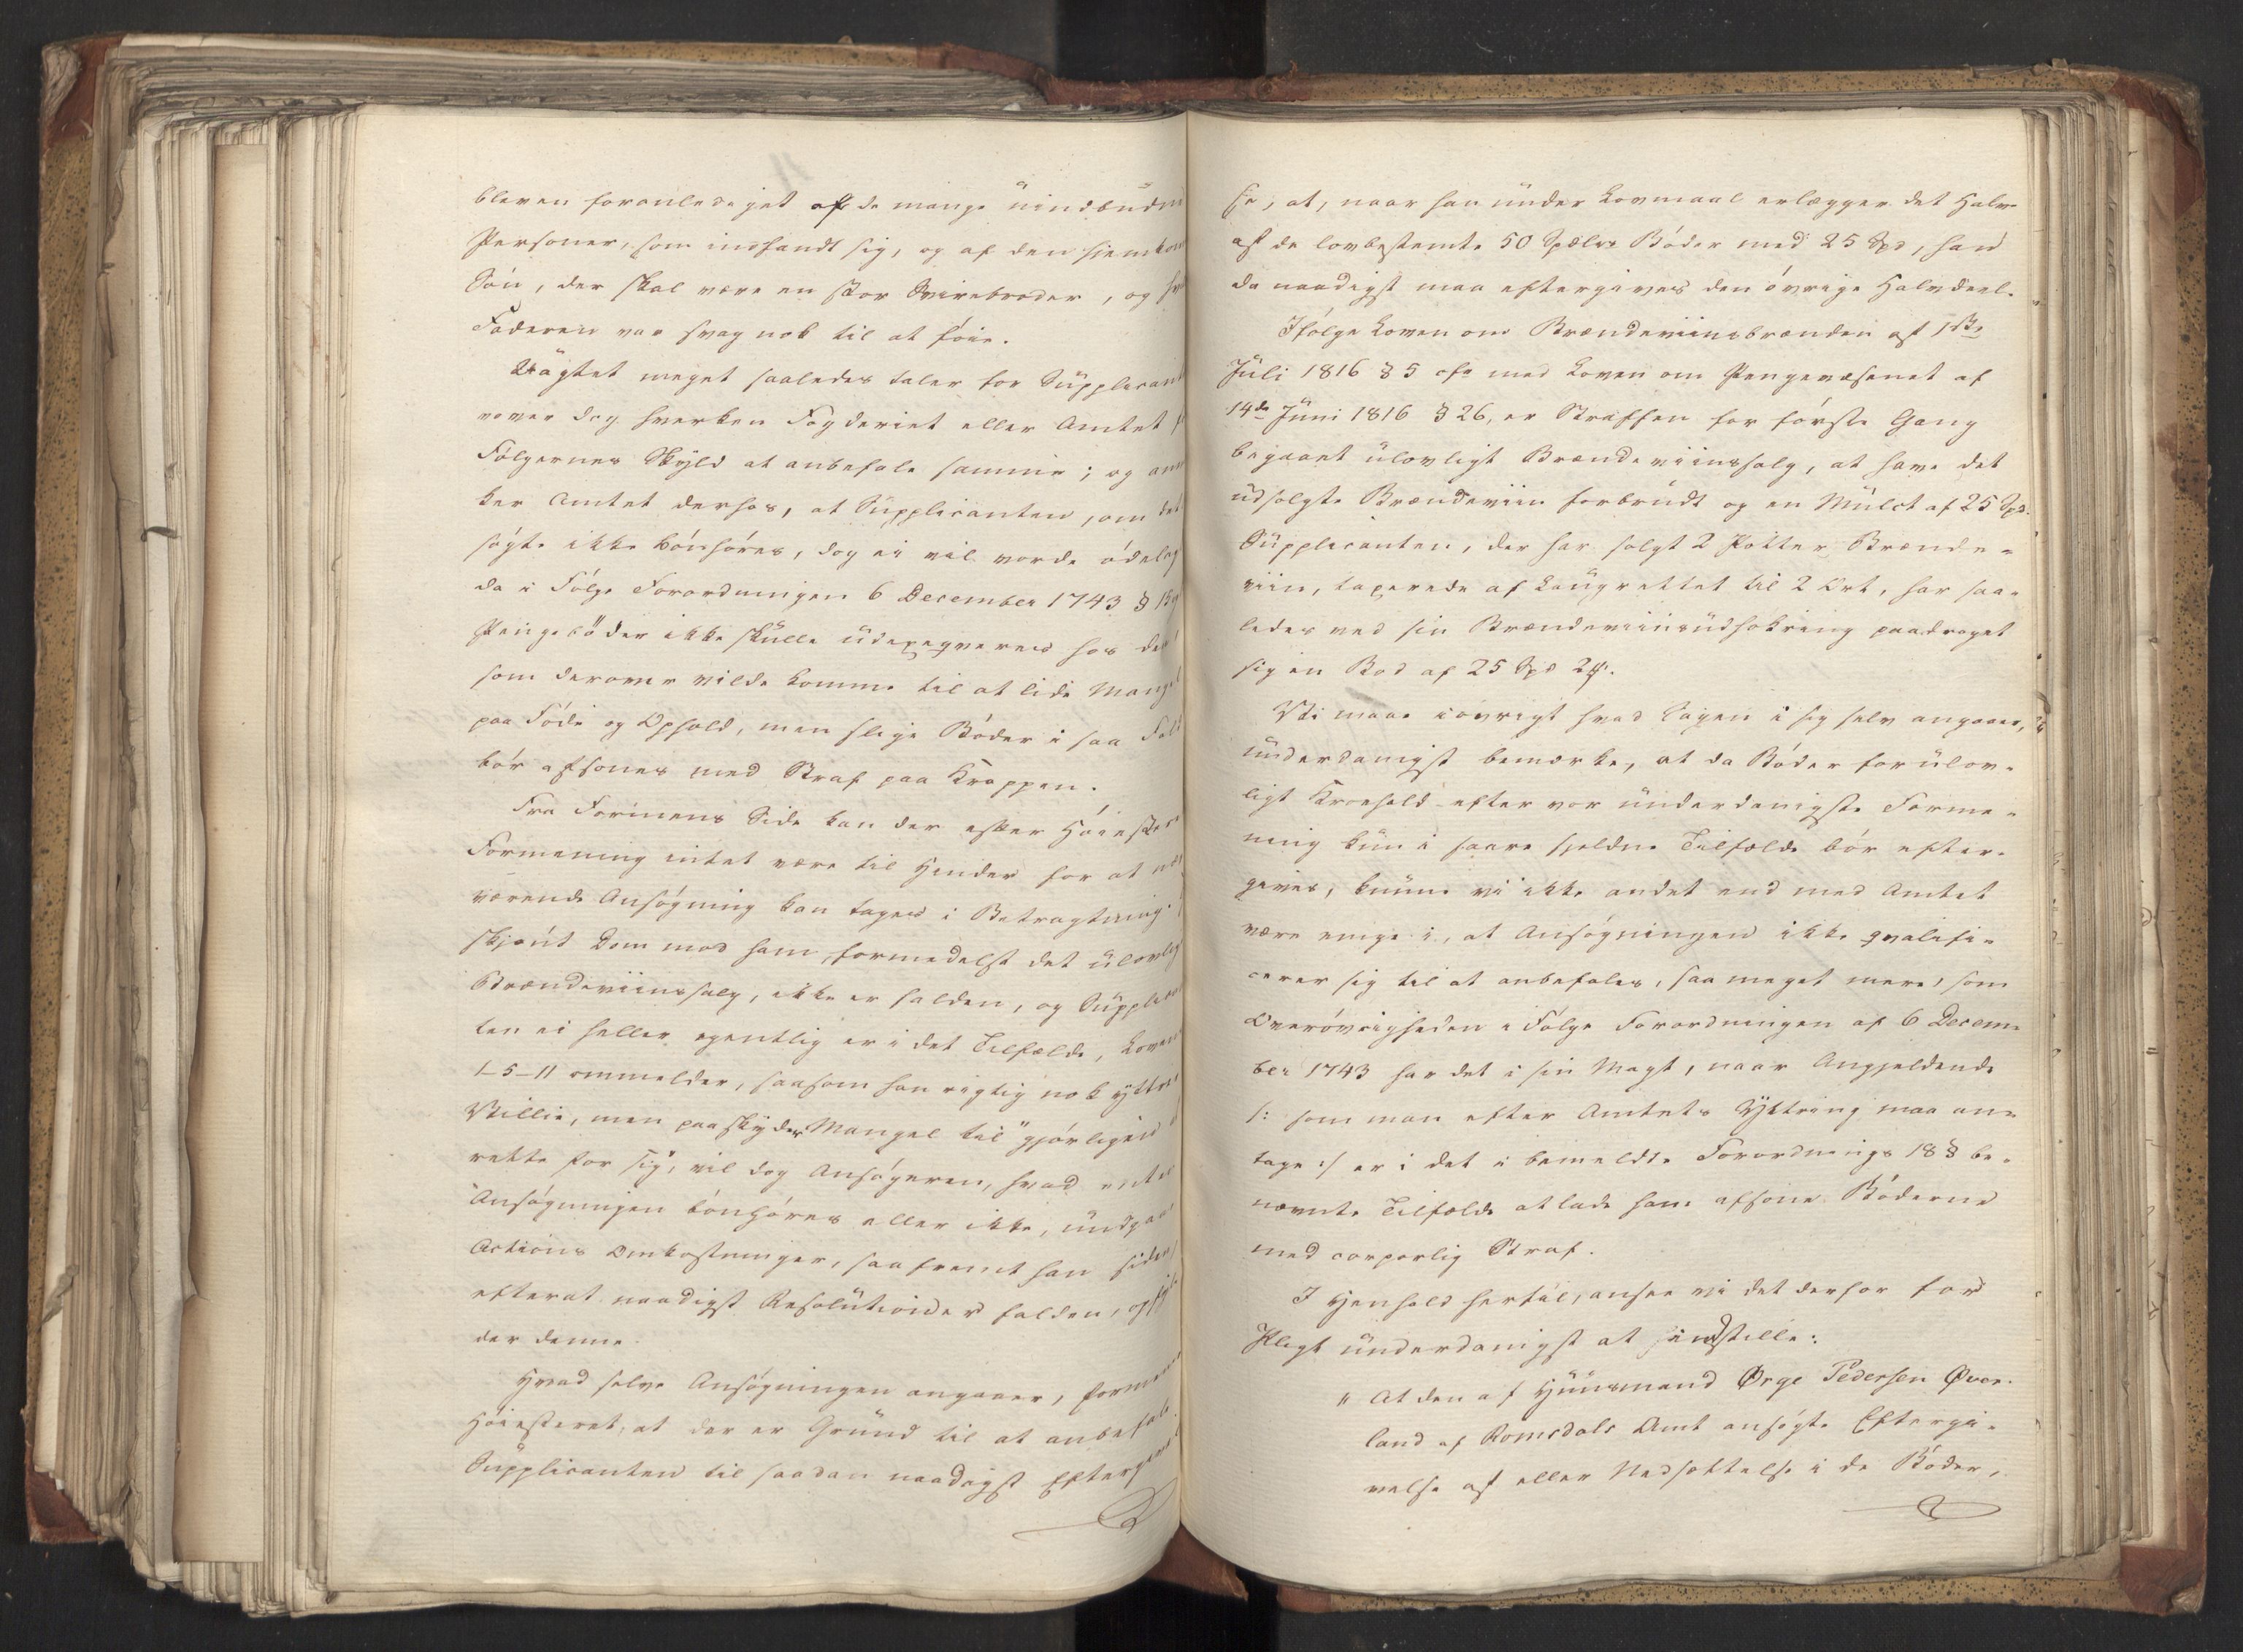 bleven foranlediget af de mange uindbudne
Personer, som indfandt sig, og af den hjemkom
Søn, der skal være en stor Svirebroder, og
Faderen var svag nok til at føie.
Uagtet meget saaledes taler for Supplicant
vover dog hverken Fogderiet eller Amtet
Følgernes Skyld at anbefale samme; og
ker Amtet derhos, at Supplicanten, om det
søgte ikke bønhøres, dog ei vil vorde ødelag
da i Følge Forordningen 6 December 1743 §
Pengebøder ikke skulle udexeqveres hos den
som derover vilde komme til at lide Mangel
paa Føde og Ophold, men slige Bøder i saa Fald
bør afsones med Straf paa Kroppen.
Fra Formens Side kan der efter Høieste
Formening intet være til Hinder for at
værende Ansøgning kan tages i Betragtning.
skjønt Dom mod ham, formedelst det ulovlig
Brændeviinssalg, ikke er falden, og Supplican
ten ei heller egentlig er i det Tilfælde, Loven
1-5-11 ommelder, saasom han rigtig nok yttrer
Villie, men paaskyder Mangel til "gjørligen
rette for sig, vil dog Ansøgeren, hvad enten
Ansøgningen bønhøres eller ikke, undgaae
Actions Omkostninger, saafremt han siden
efterat naadigst Resolution er falden,
der denne.
Hvad selve Ansøgningen angaaer, formener
Høiesteret, at der er Grund til at anbefale
Supplicanten til saadan naadigst Eftergivel
se, at, naar han under Lovmaal erlægger det Halve
af de lovbestemte 50 Spdlrs Bøder med 25 Spd, ham
da naadigst maa eftergives den øvrige Halvdeel.
Ifølge Loven om Brændeviinsbrænden af 1ste
Juli 1816 § 5 cfr med Loven om Pengevæsenet af
14de Juni 1816 § 26, er Straffen for første Gang
begaaet ulovligt Brændeviinssalg, at have det
udsolgte Brændeviin forbrudt og en Mulct af 25 Spd.
Supplicanten, der har solgt 2 Potter Brænde-
viin, taxerede af Laugrettet til 2 Ort, har saa-
ledes ved sin Brændeviinsudskjekning paadraget
sig en Bod af 25 Spd 2 Ort.
Vi maae iøvrigt hvad Sagen i sig selv angaaer,
underdanigst bemærke, at da Bøder for ulov-
ligt Kroehold efter vor underdanigste Forme-
ning kun i saare sjeldne Tilfælde bør efter-
gives, kunne vi ikke andet end med Amtet
være enige i, at Ansøgningen ikke qvalifi-
cerer sig til at anbefales, saa meget mere, som
Overøvrigheden i Følge Forordningen af 6 Decem-
ber 1743 har det i sin Magt, naar Angjeldende
/: som man efter Amtets Yttring maa an-
tage :/ er i det i bemeldte Forordnings 18 § be-
nævnte Tilfælde at lade ham afsone Bøderne
med corporlig Straf.
I Henhold hertil, ansee vi det derfor for
Pligt underdanigst at indstille:
" At den af Huusmand Ørge Pedersen Qver-
land af Romsdals Amt ansøgte Eftergi-
velse af eller Nedsættelse i de Bøder,